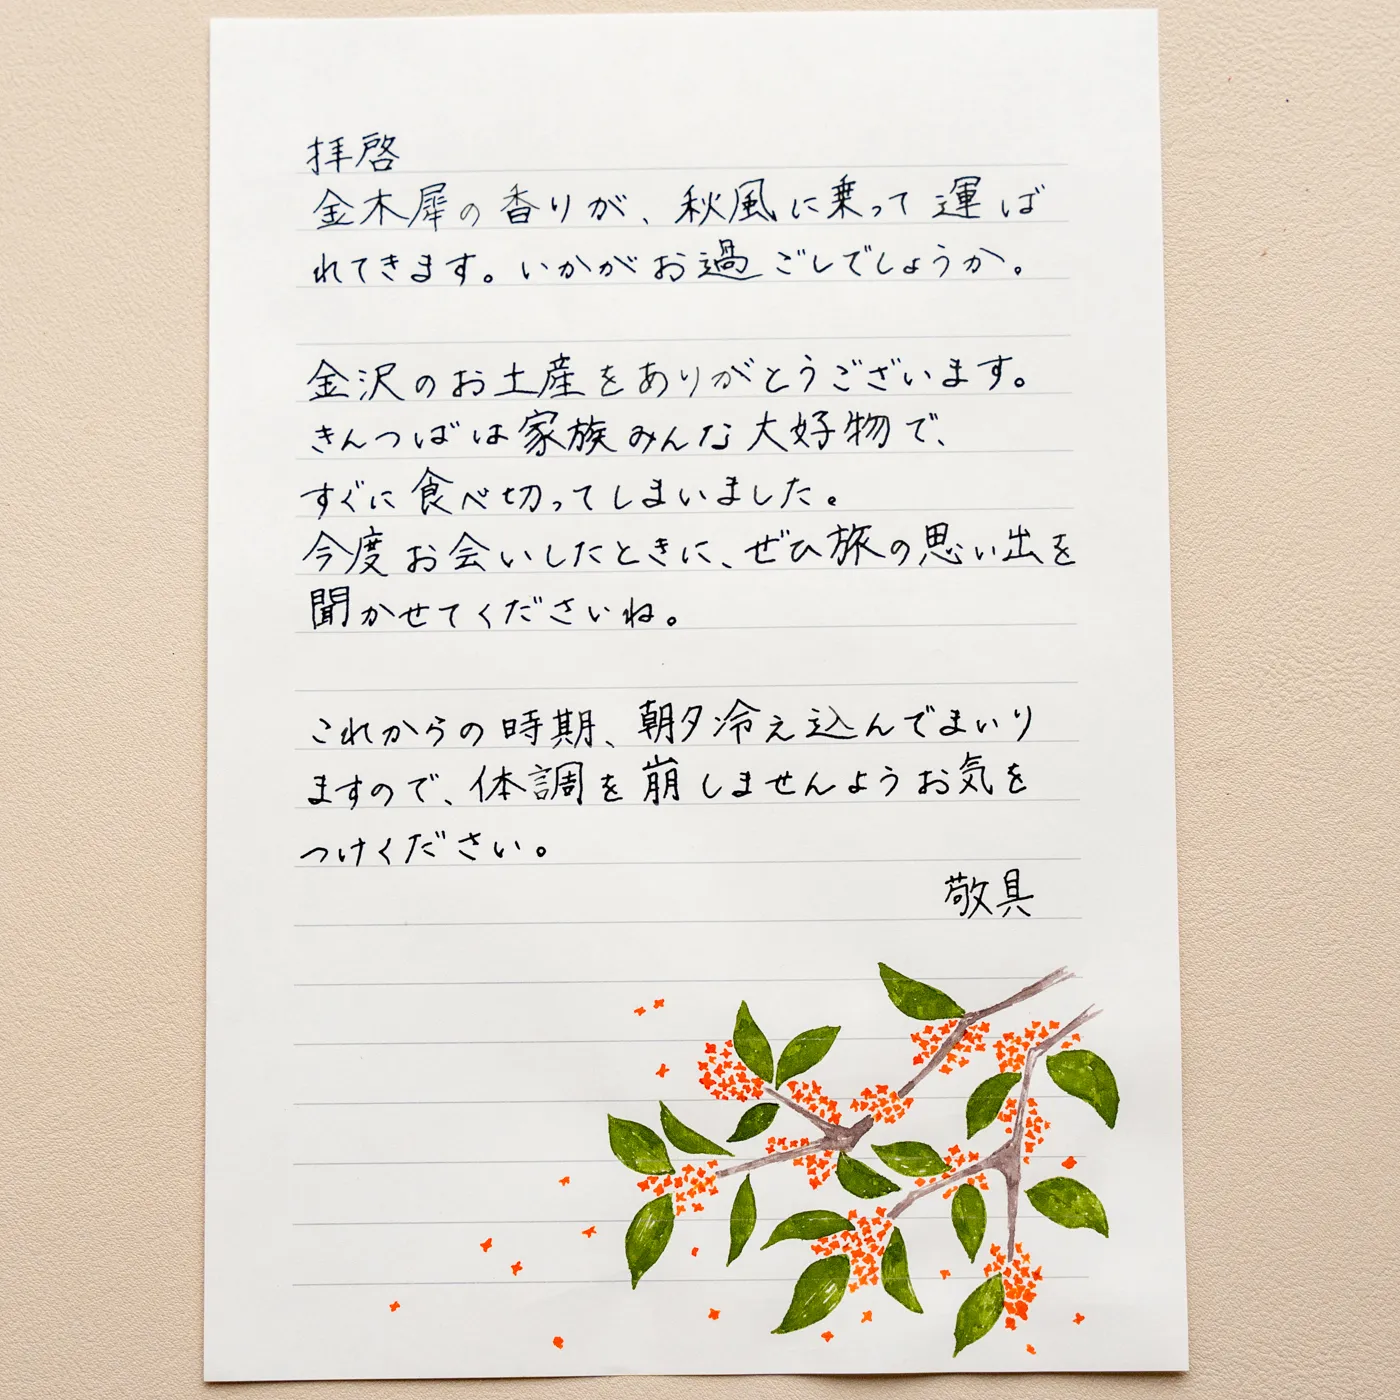 拝啓
金木犀の香りが、秋風に乗って運ば
れてきます。いかがお過ごしでしょうか。
金沢のお土産をありがとうございます。
きんつばは家族みんな大好物で、
すぐに食べ切ってしまいました。
今度お会いしたときに、ぜひ旅の思い出を
聞かせてくださいね。
これからの時期、朝夕冷え込んでまいり
ますので、体調を崩しませんようお気を
つけください。
敬具